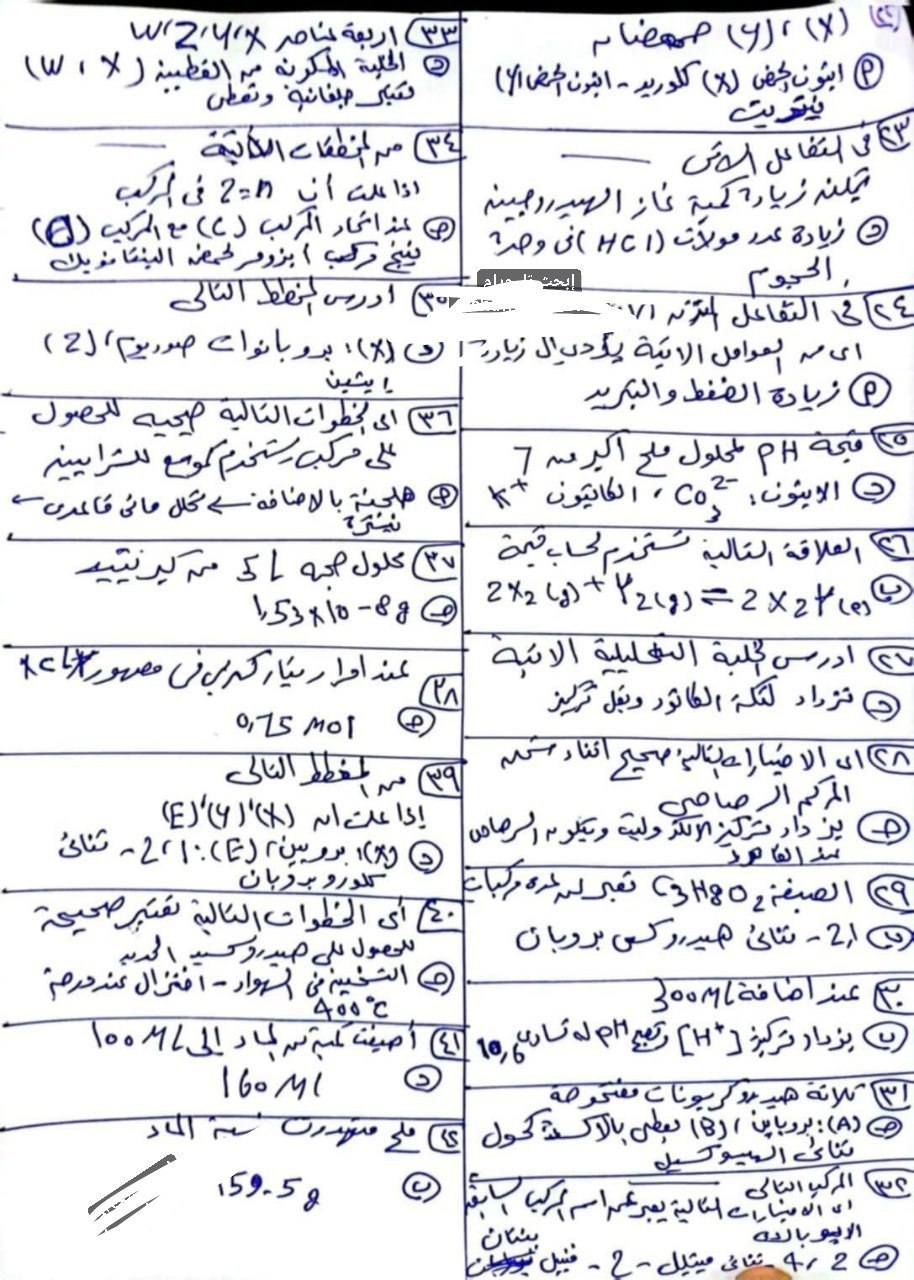 ٢٢ (X) ، (Y) حمضان
أ) انيون الحمض (X) كلوريد - انيون الحمض (Y)
نيتريت
٢٣ في التفاعل
يمكن زيادة كمية غاز الهيدروجين
د) زيادة عدد مولات (HCl) في وحدة
الحجوم
٢٤ في التفاعل المتزن
اى من العوامل الاتية يؤدي ال زيادة
أ) زيادة الضغط والتبريد
٢٥ قيمة PH لمحلول ملح أكبر من 7
د) الانيون: CO₃²⁻ ، الكاتيون K⁺
٢٦ العلاقة التالية تستخدم لحساب قيمة
ب) 2X₂(g) + Y₂(g) = 2X₂Y(e)
٢٧ ادرس الخلية التحليلية الاتية
د) تزداد كتلة الكاثود ويقل تركيز
٢٨ اى الاختيارات التالية صحيح اثناء شحن
المركم الرصاصي
ج) يزداد تركيز الالكتروليت ويتكون الرصاص
عند الكاثود
٢٩ الصيغة C₃H8O₂ تعبر عن عدة مركبات
2,1 - ثنائي هيدروكسي بروبان
٣٠ عند اضافة 300ML
ب) يزداد تركيز [H⁺] وتصبح PH له تساوى 10,6
٣١ ثلاثة هيدروكربونات مفتوحة
ج) (A): بروباين ، (B) يعطي بالاكسدة كحول
ثنائي الهيدروكسيل
٣٢ المركب التالي
اى الاختيارات التالية يعبر عن اسم المركب السابق
الايوباك
ج) 2 , 4 - ثنائي ميثيل - 2 - فنيل بنتان
٣٣ اربعة عناصر W,Z,Y,X
د) الخلية المكونة من القطبين (W ، X)
تعتبر جلفانية وتعطى
٣٤ من المخططات الاتية
اذا علمت أن n=2 في المركب
ج) عند اتحاد المركب (C) مع المركب
ينتج مركب أيزومر لحمض البنتانويك
٣٥ ادرس المخطط التالى
د) (X): بروبانوات صوديوم ، (Z)
إيثين
٣٦ اى الخطوات التالية صحيحه للحصول
على مركب يستخدم كموسع للشرايين
ج) هلجنة بالاضافة ← تحلل مائي قاعدى ←
نيترة
٣٧ محلول حجمه 5L من كبريتيد
ج) 1,53×10-8g
عند امرار تيار كهربي في مصهور
٣٨
ج) 0,75 Mol
٣٩ من المخطط التالى
إذا علمت ان (X) ، (Y) ، (E)
د) (X): بروبين ، (E): 2,1 - ثنائي
كلورو بروبان
٤٠ أى الخطوات التالية تعتبر صحيحة
للحصول على هيدروكسيد الحديد
ج) التسخين في الهواء - اختزال عند درجة
400°C
٤١ أضيفت كمية من الماء إلى 100ML
د) 160 Ml
٤٢ ملح متهدرت نسبة الماء
ب) 159.5g